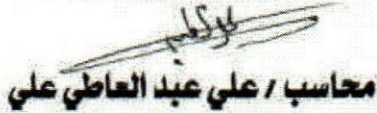 محاسب / علي عبد العاطي علي